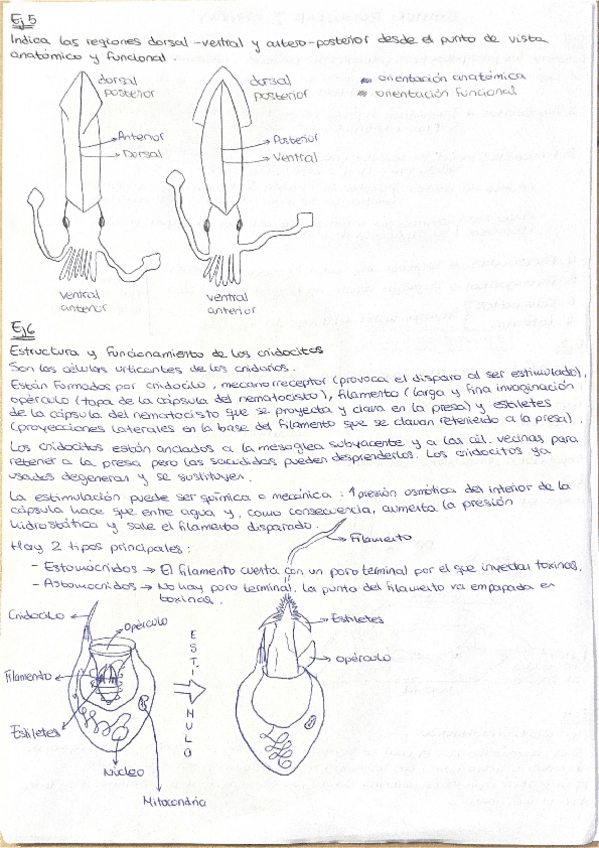 Ej 5
Indica las regiones dorsal-ventral y antero-posterior desde el punto de vista
anatómico y funcional.
dorsal
posterior
dorsal
posterior
orientación anatómica
orientación funcional
Anterior
Dorsal
Posterior
Ventral
ventral
anterior
ventral
anterior
Ej 6
Estructura y funcionamiento de los cnidocitos
Son las células urticantes de los cnidarios.
Están formados por cnidocilo, mecanorreceptor (provoca el disparo al ser estimulado),
opérculo (tapa de la cápsula del nematocisto), filamento (larga y fina invaginación
de la cápsula del nematocisto que se proyecta y clava en la presa) y estiletes
(proyecciones laterales en la base del filamento que se clavan reteniendo a la presa).
Los cnidocitos están anclados a la mesoglea subyacente y a las cél. vecinas para
retener a la presa pero las sacudidas pueden desprenderlos. Los cnidocitos ya
usados degeneran y se sustituyen.
La estimulación puede ser química o mecánica: ↑presión osmótica del interior de la
cápsula hace que entre agua y, como consecuencia, aumenta la presión
hidrostática y sale el filamento disparado.
Filamento
Hay 2 tipos principales:
- Estomocnidos → El filamento cuenta con un poro terminal por el que inyectar toxinas.
- Astomocnidos → No hay poro terminal. La punta del filamento va empapada en
toxinas.
Cnidocilo
Opérculo
Filamento
Estiletes
Núcleo
Mitocondria
ESTÍMULO
Estiletes
opérculo